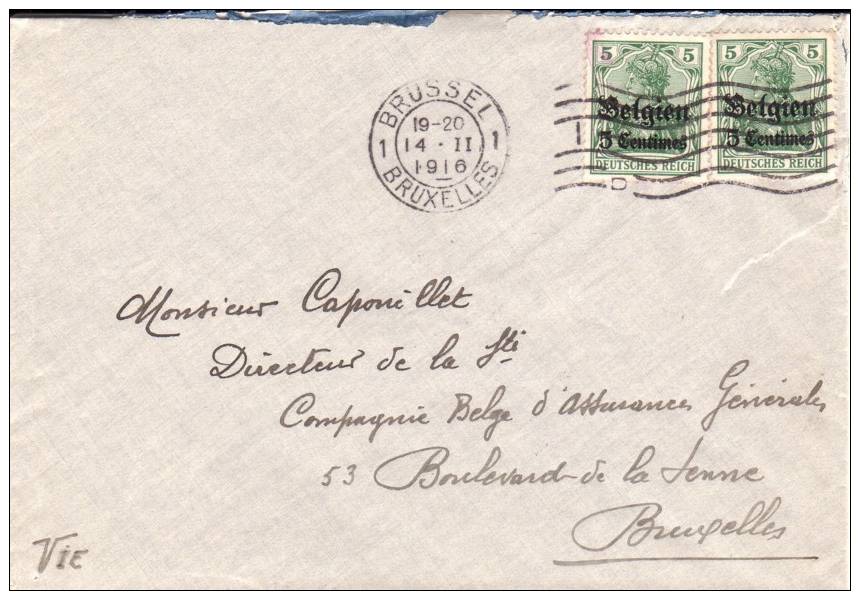 BRUSSEL
1 19-20 1
14 · II
1916
BRUXELLES
5 5
Belgien
5 Centimes
DEUTSCHES REICH
5 5
Belgien
5 Centimes
DEUTSCHES REICH
D
Monsieur Capouillet
Directeur de la Sté
Compagnie Belge d'Assurances Générales
53 Boulevard de la Senne
Bruxelles
Vie